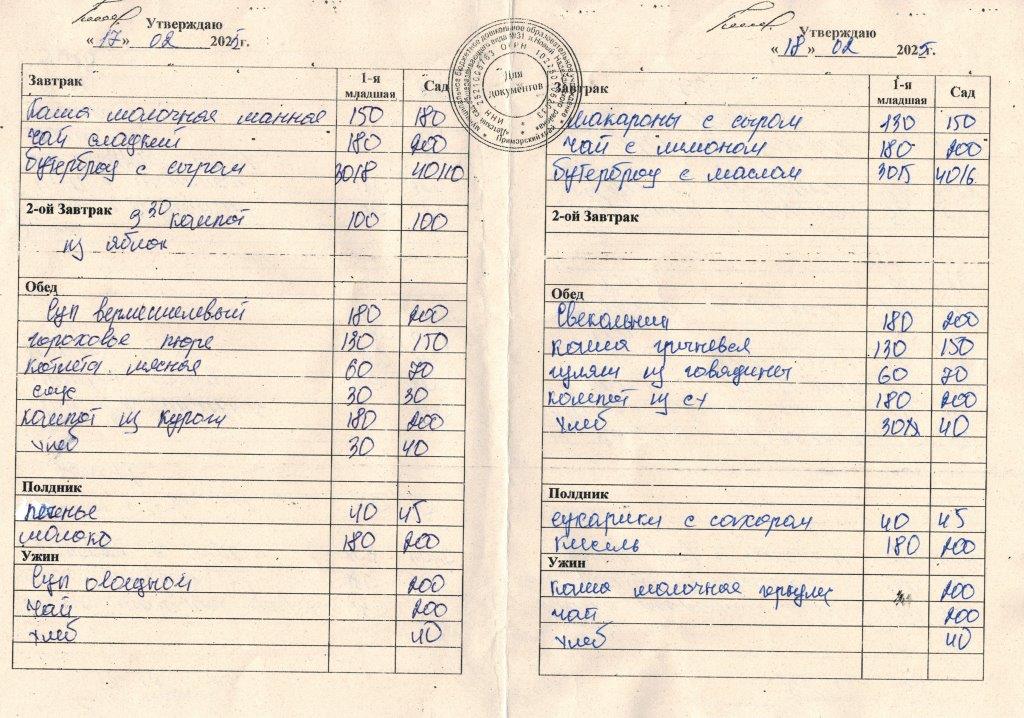 Утверждаю
«17» 02 2025г.
Завтрак 1-я младшая Сад
Каша молочная манная 150 180
Чай сладкий 180 200
Бутерброд с сыром 30/8 40/10
2-ой Завтрак 9 30 компот 100 100
из яблок
Обед
Суп вермишелевый 180 200
гороховое пюре 130 150
котлета мясная 60 70
соус 30 30
компот из кураги 180 200
хлеб 30 40
Полдник
печенье 40 45
молоко 180 200
Ужин
Суп овощной 200
Чай 200
хлеб 40
Для документов
Утверждаю
«18» 02 2025г.
Завтрак 1-я младшая Сад
Макароны с сыром 130 150
Чай с лимоном 180 200
Бутерброд с маслом 30/5 40/6
2-ой Завтрак
Обед
Свекольник 180 200
каша гречневая 130 150
гуляш из говядины 60 70
компот из сх 180 200
хлеб 30 40
Полдник
сухарики с сахаром 40 45
кисель 180 200
Ужин
каша молочная геркулес 200
чай 200
хлеб 40